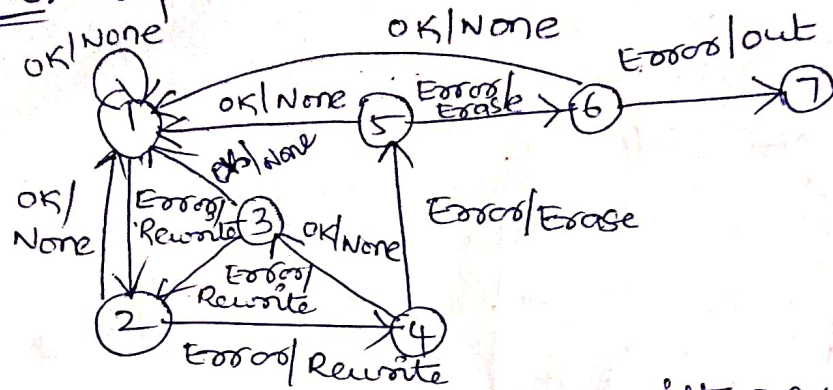 OK/None
OK/None
Error/out
1
OK/None
5
Error/
Erase
6
7
OK/None
OK/
None
Error/
Rewrite
3
OK/None
Error/Erase
Error/
Rewrite
2
4
Error/Rewrite